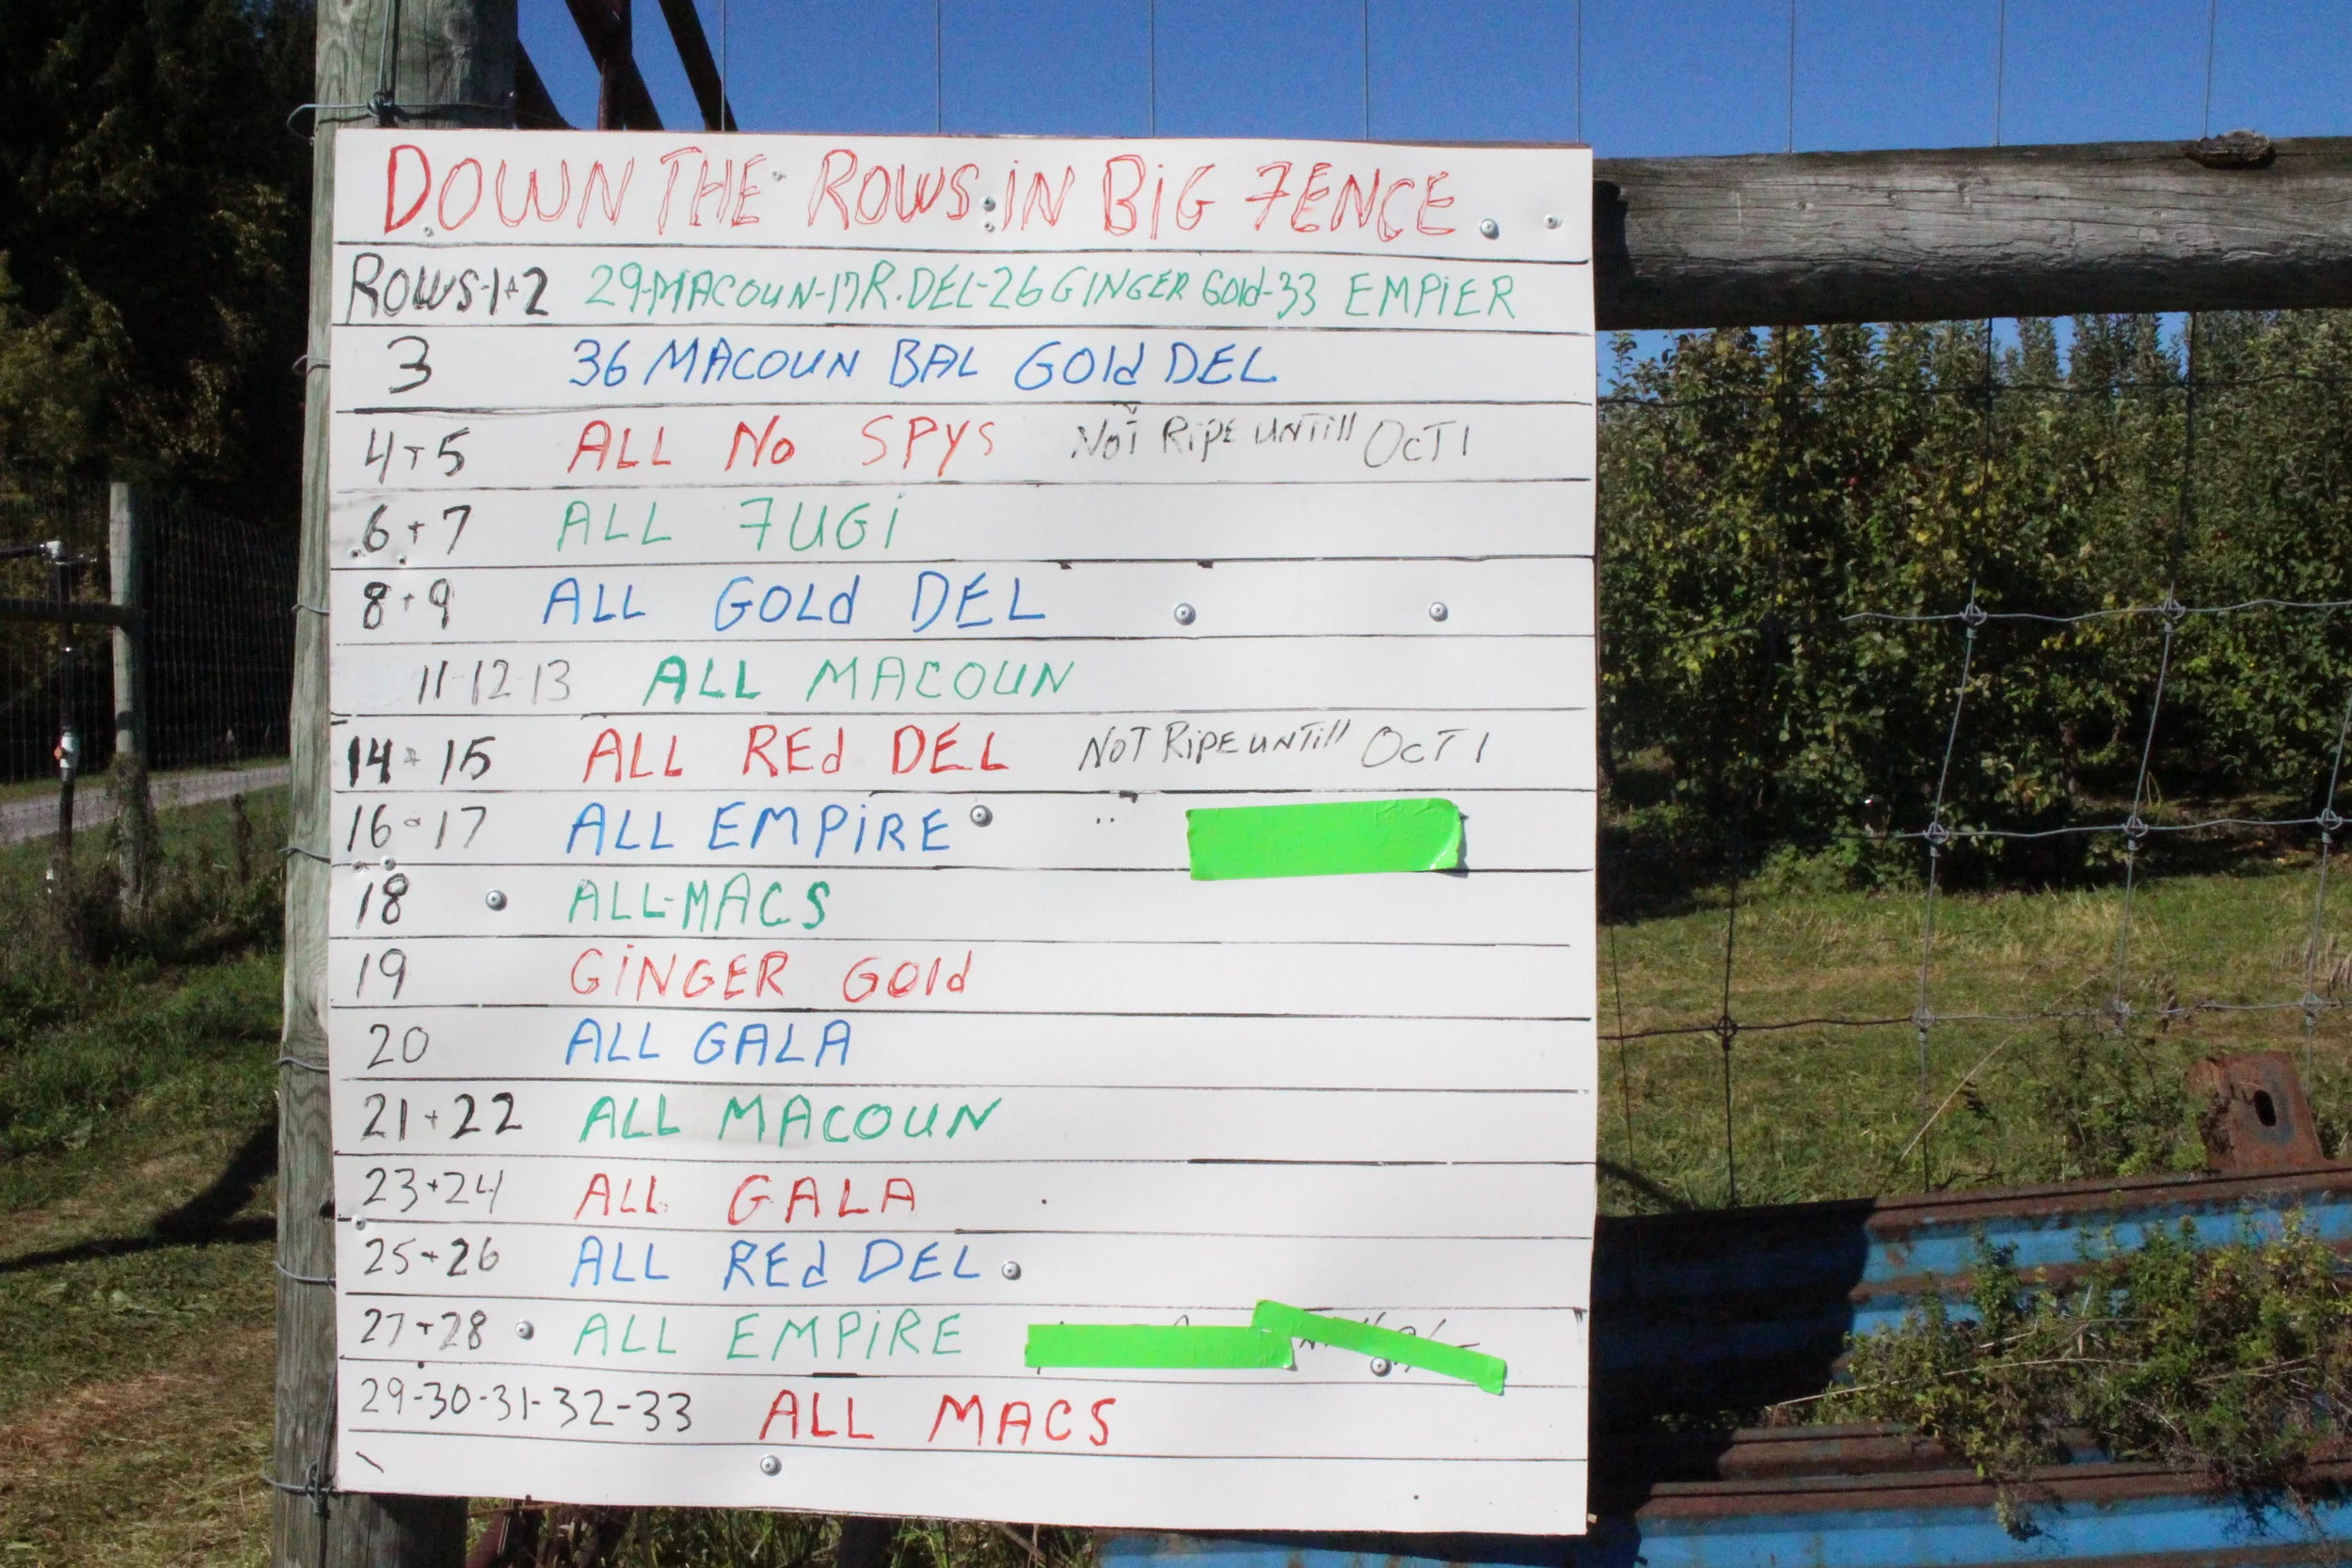 DOWN THE ROWS IN BiG FENCE
ROWS-1+2 29-MACOUN-17R.DEL-26 GINGER Gold-33 EMPiER
3 36 MACOUN BAL GOld DEL
4+5 ALL No SPYS NOT RiPE UNTill OcT 1
6+7 ALL FUGi
8+9 ALL GOLd DEL
11-12-13 ALL MACOUN
14+15 ALL REd DEL NOT RiPE UNTill OcT 1
16-17 ALL EMPiRE
18 ALL-MACS
19 GiNGER GOld
20 ALL GALA
21+22 ALL MACOUN
23+24 ALL GALA
25+26 ALL REd DEL
27+28 ALL EMPiRE
29-30-31-32-33 ALL MACS